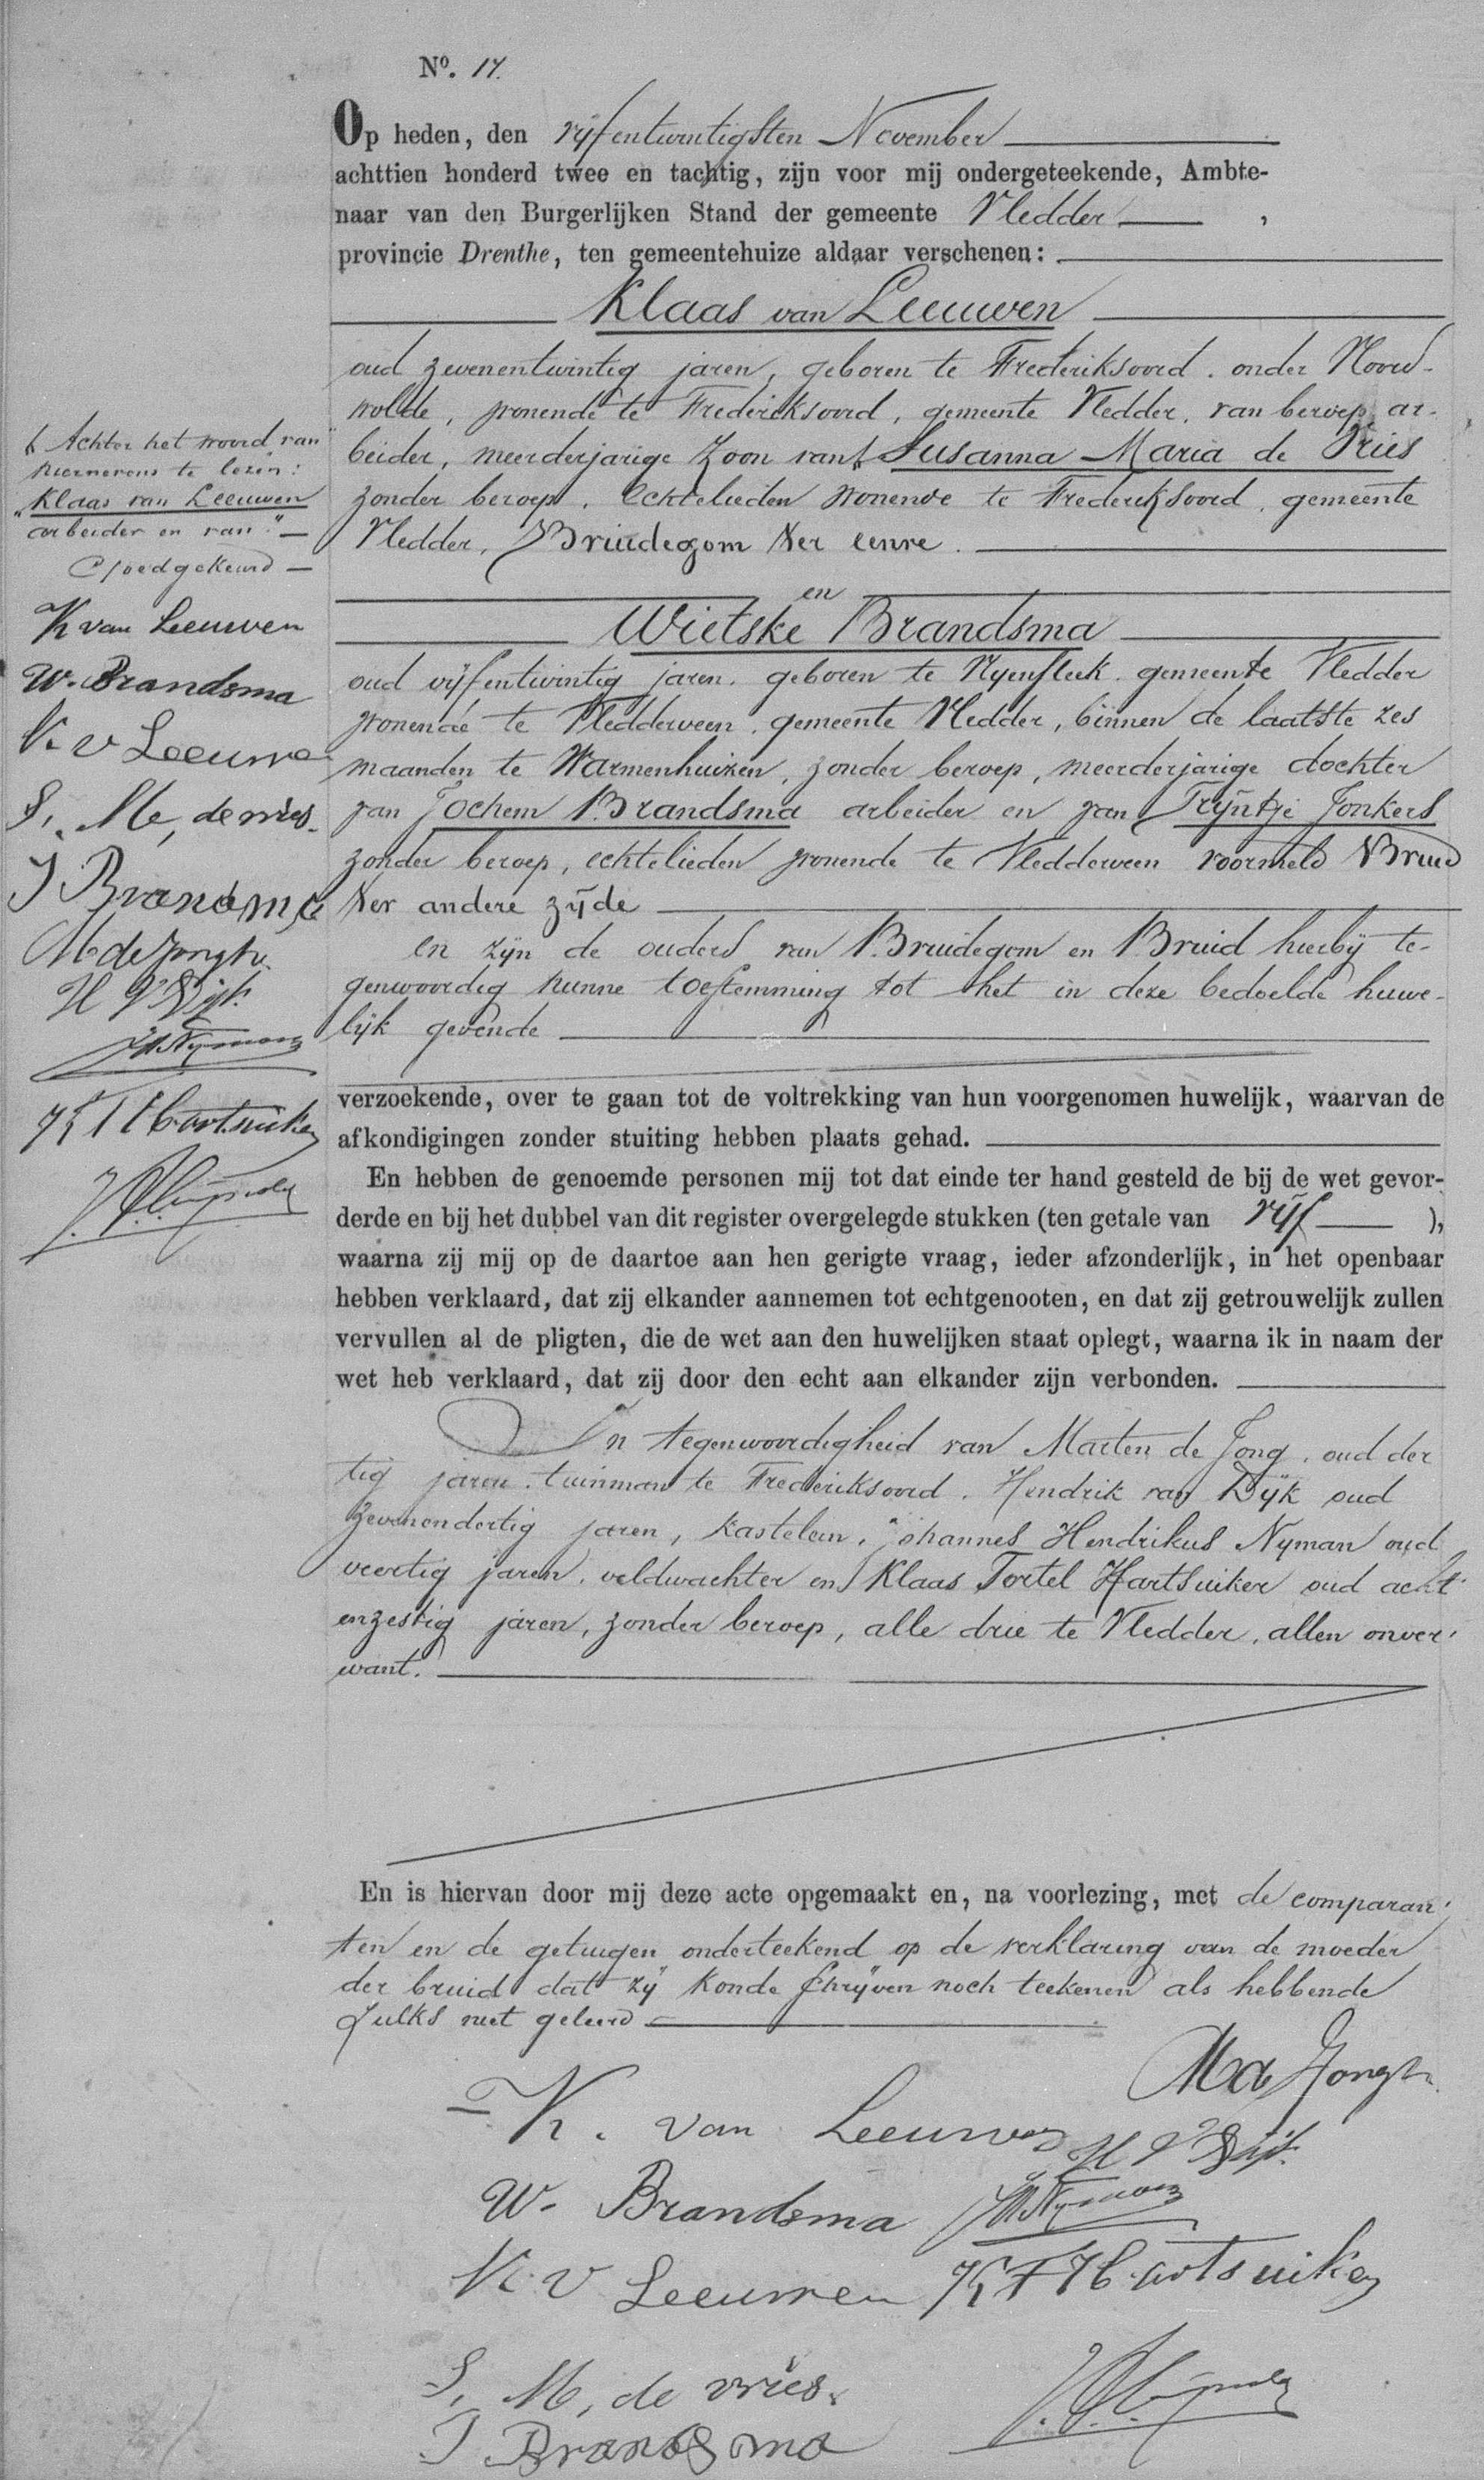 Nº. 17.
Op heden, den vijfentwintigsten November
achttien honderd twee en tachtig, zijn voor mij ondergeteekende, Ambte-
naar van den Burgerlijken Stand der gemeente Vledder,
provincie Drenthe, ten gemeentehuize aldaar verschenen:
Klaas van Leeuwen
oud zevenentwintig jaren, geboren te Frederiksoord. onder Noord-
wolde, wonende te Frederiksoord, gemeente Vledder, van beroep ar-
beider, meerderjarige Zoon van Susanna Maria de Vries
zonder beroep. Echtelieden wonende te Frederiksoord, gemeente
Vledder, Bruidegom ter eenre.
en
Wietske Brandsma
oud vijfentwintig jaren. geboren te Nyensleek. gemeente Vledder
wonende te Vledderveen. gemeente Vledder, binnen de laatste zes
maanden te Warmenhuizen, zonder beroep, meerderjarige dochter
van Jochem Brandsma arbeider en van Trijntje Jonkers
zonder beroep, echtelieden wonende te Vledderveen voormeld Bruid
ter andere zijde
en zijn de ouders van Bruidegom en Bruid hierbij te-
genwoordig hunne toestemming tot het in deze bedoelde huwe-
lijk gevende
verzoekende, over te gaan tot de voltrekking van hun voorgenomen huwelijk, waarvan de
afkondigingen zonder stuiting hebben plaats gehad.
En hebben de genoemde personen mij tot dat einde ter hand gesteld de bij de wet gevor-
derde en bij het dubbel van dit register overgelegde stukken (ten getale van vijf),
waarna zij mij op de daartoe aan hen gerigte vraag, ieder afzonderlijk, in het openbaar
hebben verklaard, dat zij elkander aannemen tot echtgenooten, en dat zij getrouwelijk zullen
vervullen al de pligten, die de wet aan den huwelijken staat oplegt, waarna ik in naam der
wet heb verklaard, dat zij door den echt aan elkander zijn verbonden.
In tegenwoordigheid van Marten de Jong, oud der
tig jaren. tuinman te Frederiksoord. Hendrik van Dijk oud
zevenendertig jaren, kastelein, Johannes Hendrikus Nyman oud
veertig jaren, veldwachter en Klaas Tortel Hartsuiker oud acht
enzestig jaren, zonder beroep, alle drie te Vledder, allen onver
want.
En is hiervan door mij deze acte opgemaakt en, na voorlezing, met de comparan
ten en de getuigen onderteekend op de verklaring van de moeder
der bruid dat zij konde schrijven noch teekenen als hebbende
zulks niet geleerd
Achter het woord van
hiernevens te lezen:
"Klaas van Leeuwen
arbeider en van"
Goedgekeurd
K van Leeuwen
W. Brandsma
K v Leeuwe
S. M. de vries.
J Brandsma
M de Jong
H v Dijk
JH Nyman
K T Hartsuiker
M de Jong
K. van Leeuwen
H v Dijk
W. Brandsma
JH Nyman
K v Leeuwen
K T Hartsuiker
S. M. de vries.
J Brandsma